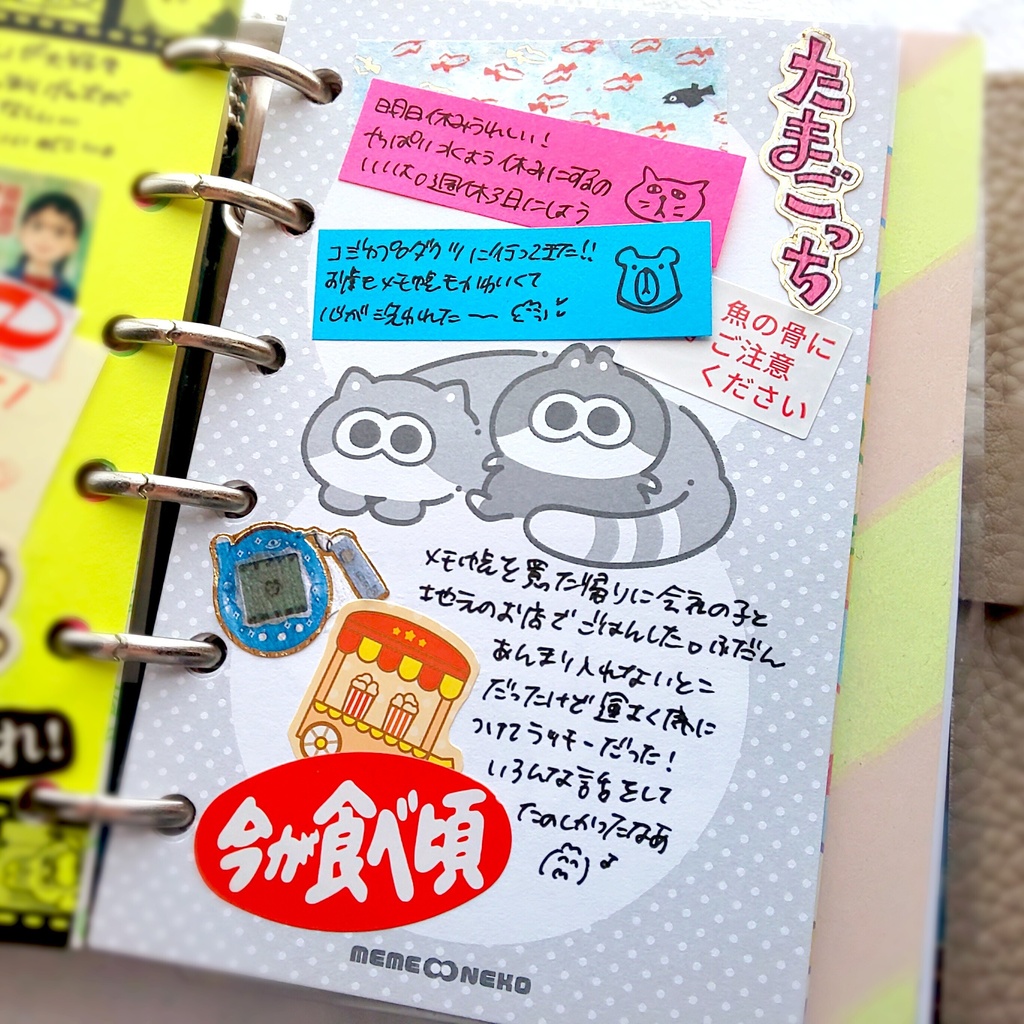 たまごっち
明日休みうれしい！
やっぱり水よう休みにするの
いいは。週休3日にしよう
に行って来た!!
お歯もメモ帳もかわいくて
心が洗われた〜
魚の骨に
ご注意
ください
メモ帳を買った帰りに会社の子と
地元のお店でごはんした。ふだん
あんまり入れないとこ
だったけど運よく席に
つけてラッキーだった！
いろんな話をして
たのしかったなあ
今が食べ頃
MEME NEKO
れ!